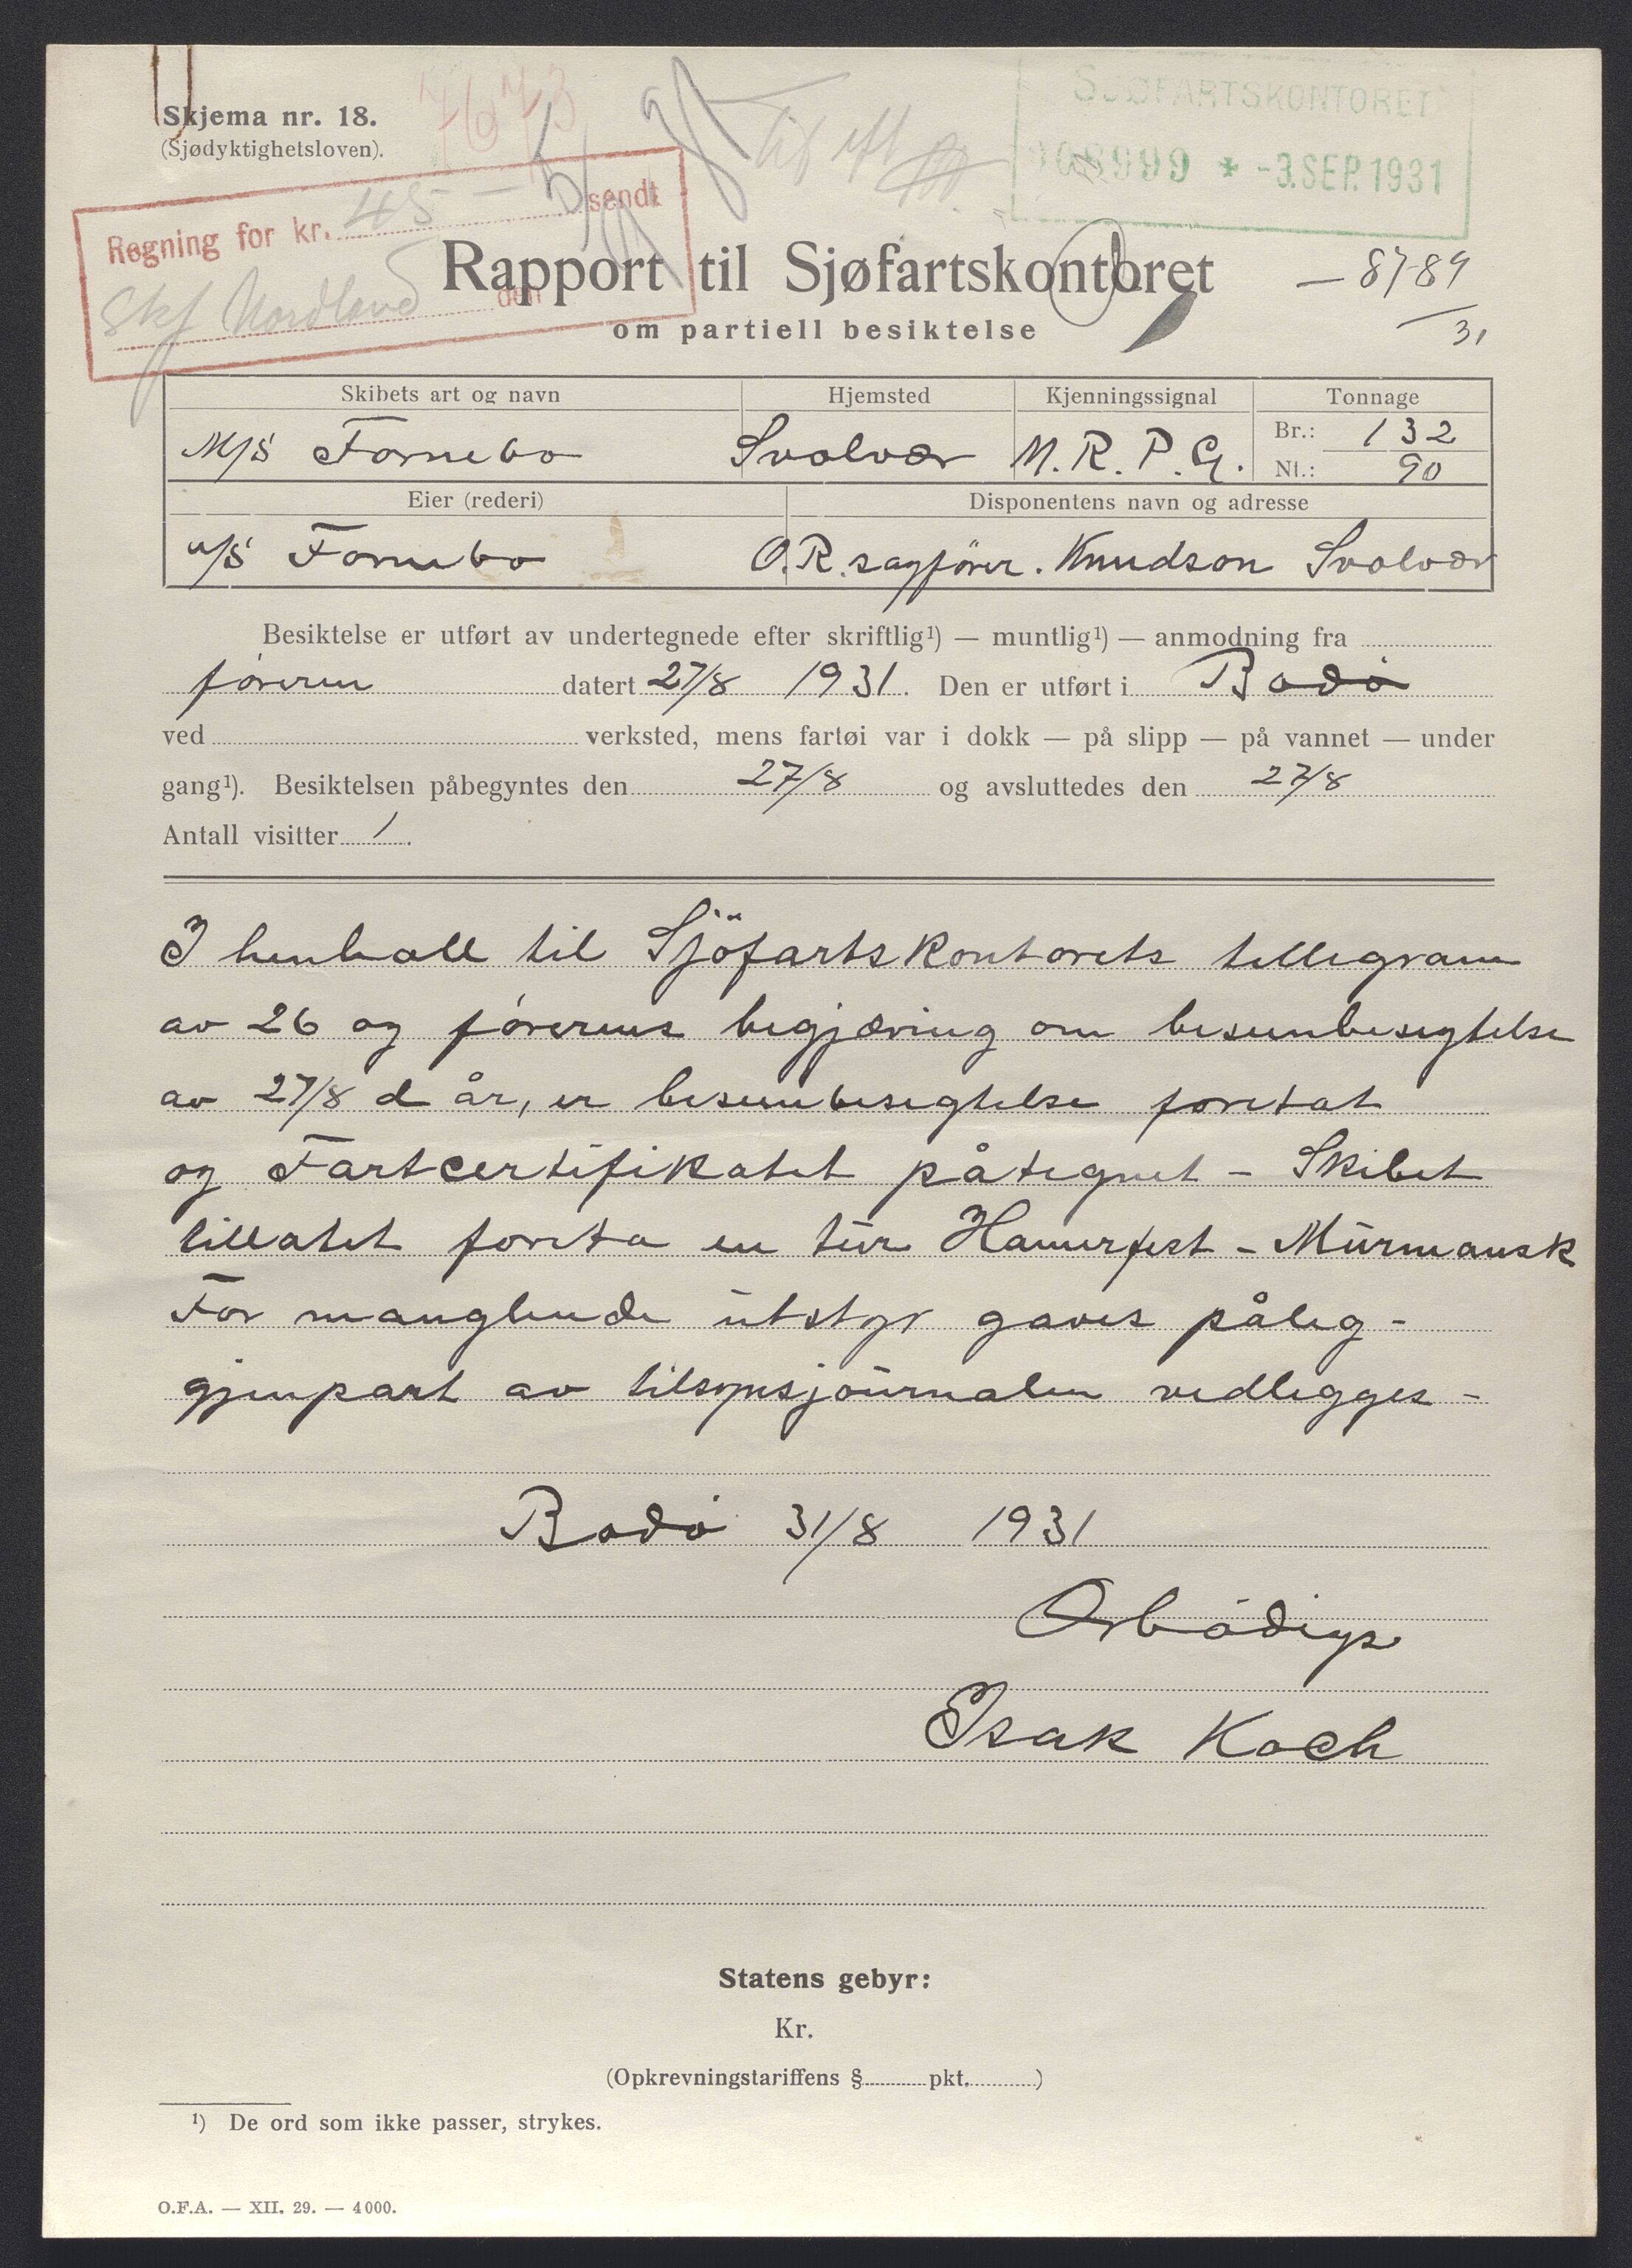 Skjema nr. 18.
(Sjødyktighetsloven).
7673
SJØFARTSKONTORET
08999 * -3.SEP.1931
Regning for kr. 45 - sendt
Skf Nordland den
Rapport til Sjøfartskontoret
— 8789
31
om partiell besiktelse
Skibets art og navn Hjemsted Kjenningssignal Tonnage
M/S Fornebo Svolvær M.R.P.G. Br.: 132
Nt.: 90
Eier (rederi) Disponentens navn og adresse
a/s Fornebo O.R.sagfører. Knudson Svolvær
Besiktelse er utført av undertegnede efter skriftlig¹) — muntlig¹) — anmodning fra
føreren datert 27/8 1931. Den er utført i Bodø
ved verksted, mens fartøi var i dokk — på slipp — på vannet — under
gang¹). Besiktelsen påbegyntes den 27/8 og avsluttedes den 27/8
Antall visitter 1.
I henhall til Sjöfartskontorets tellegram
av 26 og førerens begjæring om besunbesigtelse
av 27/8 d år, er besunbesigtelse foretat
og Fartcertifikatet påtegnet - Skibet
tillatet foreta en tur Hamerfest - Murmansk
For manglende utstyr gaves påleg -
gjenpart av tilsynsjournalen vedlegges -
Bodø 31/8 1931
Ærbødigs
Isak Koch
Statens gebyr:
Kr.
(Opkrevningstariffens § pkt. )
¹) De ord som ikke passer, strykes.
O.F.A. — XII. 29. — 4000.